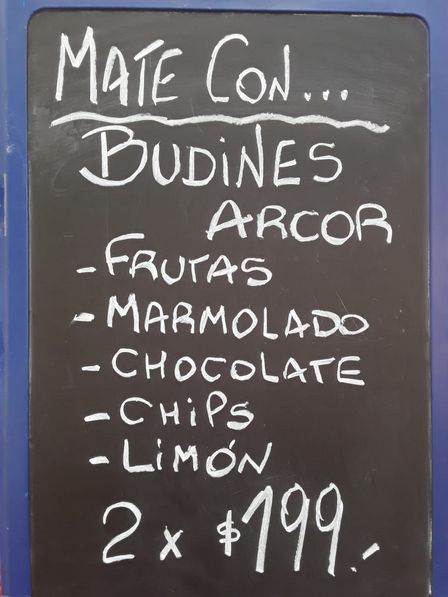 MATE CON...
BUDINES
ARCOR
-FRUTAS
-MARMOLADO
-CHOCOLATE
-CHIPS
-LIMÓN
2 x $199.-